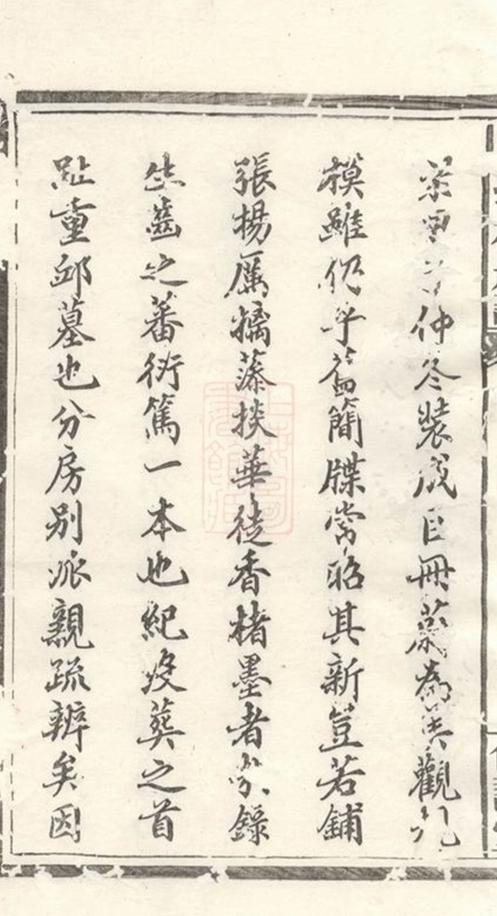 仲冬裝成巨冊蔚為美觀
模雖仍乎舊簡牒常昭其新豈若鋪
張揚厲摛藻掞華徒香楮墨者錄
生齒之蕃衍篤一本也紀歿葬之首
趾重邱墓也分房别派親疏辨矣因